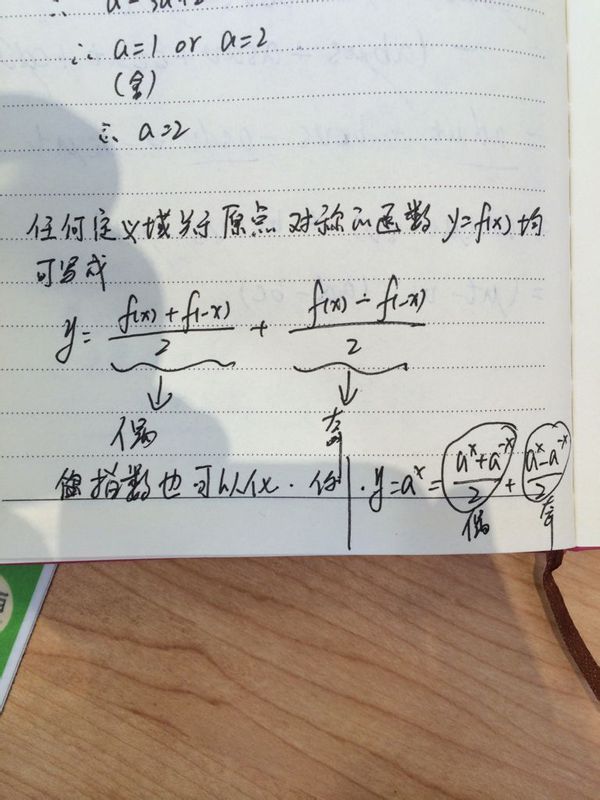 ∴ a²-3a+2
∴ a=1 or a=2
(舍)
∴ a=2
任何定义域关于原点对称的函数 y=f(x) 均
可写成
y= (f(x)+f(-x))/2 + (f(x)-f(-x))/2
↓ ↓
偶 奇
指数也可以仪. y=a^x = (a^x+a^-x)/2 + (a^x-a^-x)/2
偶 奇